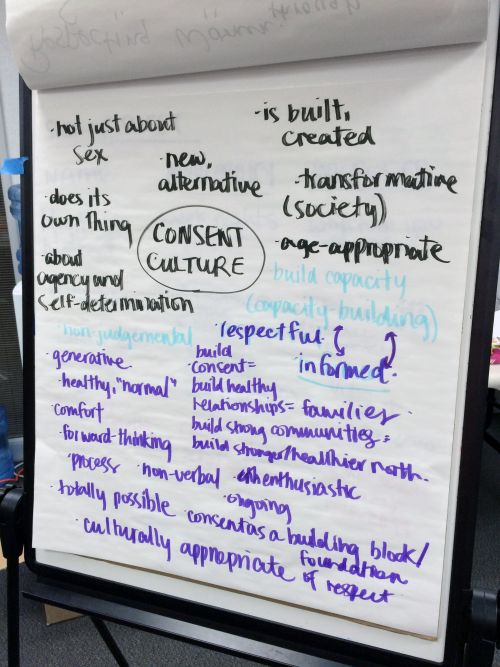 ·not just about
sex
·is built,
created
·new,
alternative
·does its
own thing
·transformative
(society)
CONSENT
CULTURE
·age-appropriate
·about
agency and
self-determination
build capacity
(capacity building)
·non-judgemental
·respectful
·informed·
·generative
·healthy, "normal"
comfort
·forward-thinking
build
consent=
build healthy
relationships= families·
build strong communities=
build stronger/healthier north·
·process
·non-verbal
·enthusiastic
·ongoing
·totally possible
·consent as a building block/
foundation
of respect
·culturally appropriate